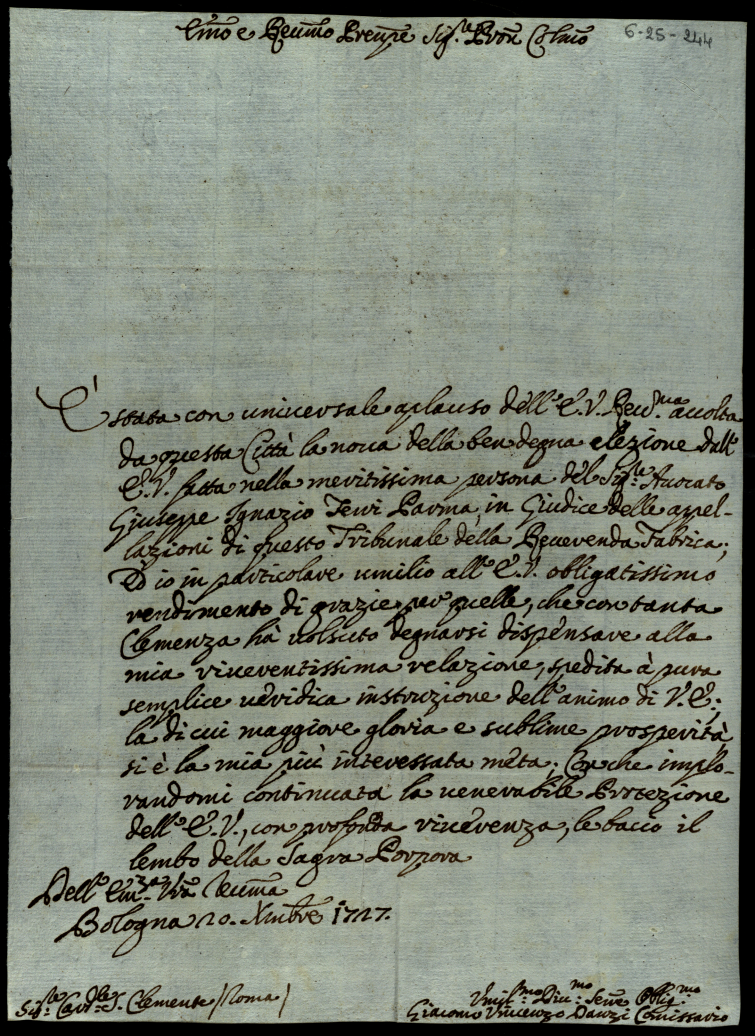 Em̃o e Reum̃o Prenp̃e Sig.re Pron͠e Colm̃o
6-25-244
E' stata con uniuersale aplauso dell'E.V. Reu.ma accolta
da questa Città la noua della ben degna elezione dall'
E.V. fatta nella meritissima persona del Sig.re Auocato
Giuseppe Ignazio Parma, in Giudice delle appel-
lazioni di questo Tribunale della Reuerenda Fabrica;
Ed io in particolare umilio all'E.V. obligatissimo
rendimento di grazie per quelle, che con tanta
Clemenza hà uolsuto degnarsi dispensare alla
mia riuerentissima relazione, spedita à pura
semplice ueridica instruzione dell'animo di V.E.;
la di cui maggiore gloria e sublime prosperità
si è la mia più interessata mèta. Con che implo-
randomi continuata la uenerabile Protezione
dell'E.V., con profonda riuerenza, le bacio il
lembo della Sagra Porpora
Dell'Em.za Vr̃a Reum̃a
Bologna 20. Xmbre 1727.
Sig.re Card.le S. Clemente /Roma/
Vmil.mo Diu.mo Serre Oblig.mo
Giacomo Vincenzo Comissario